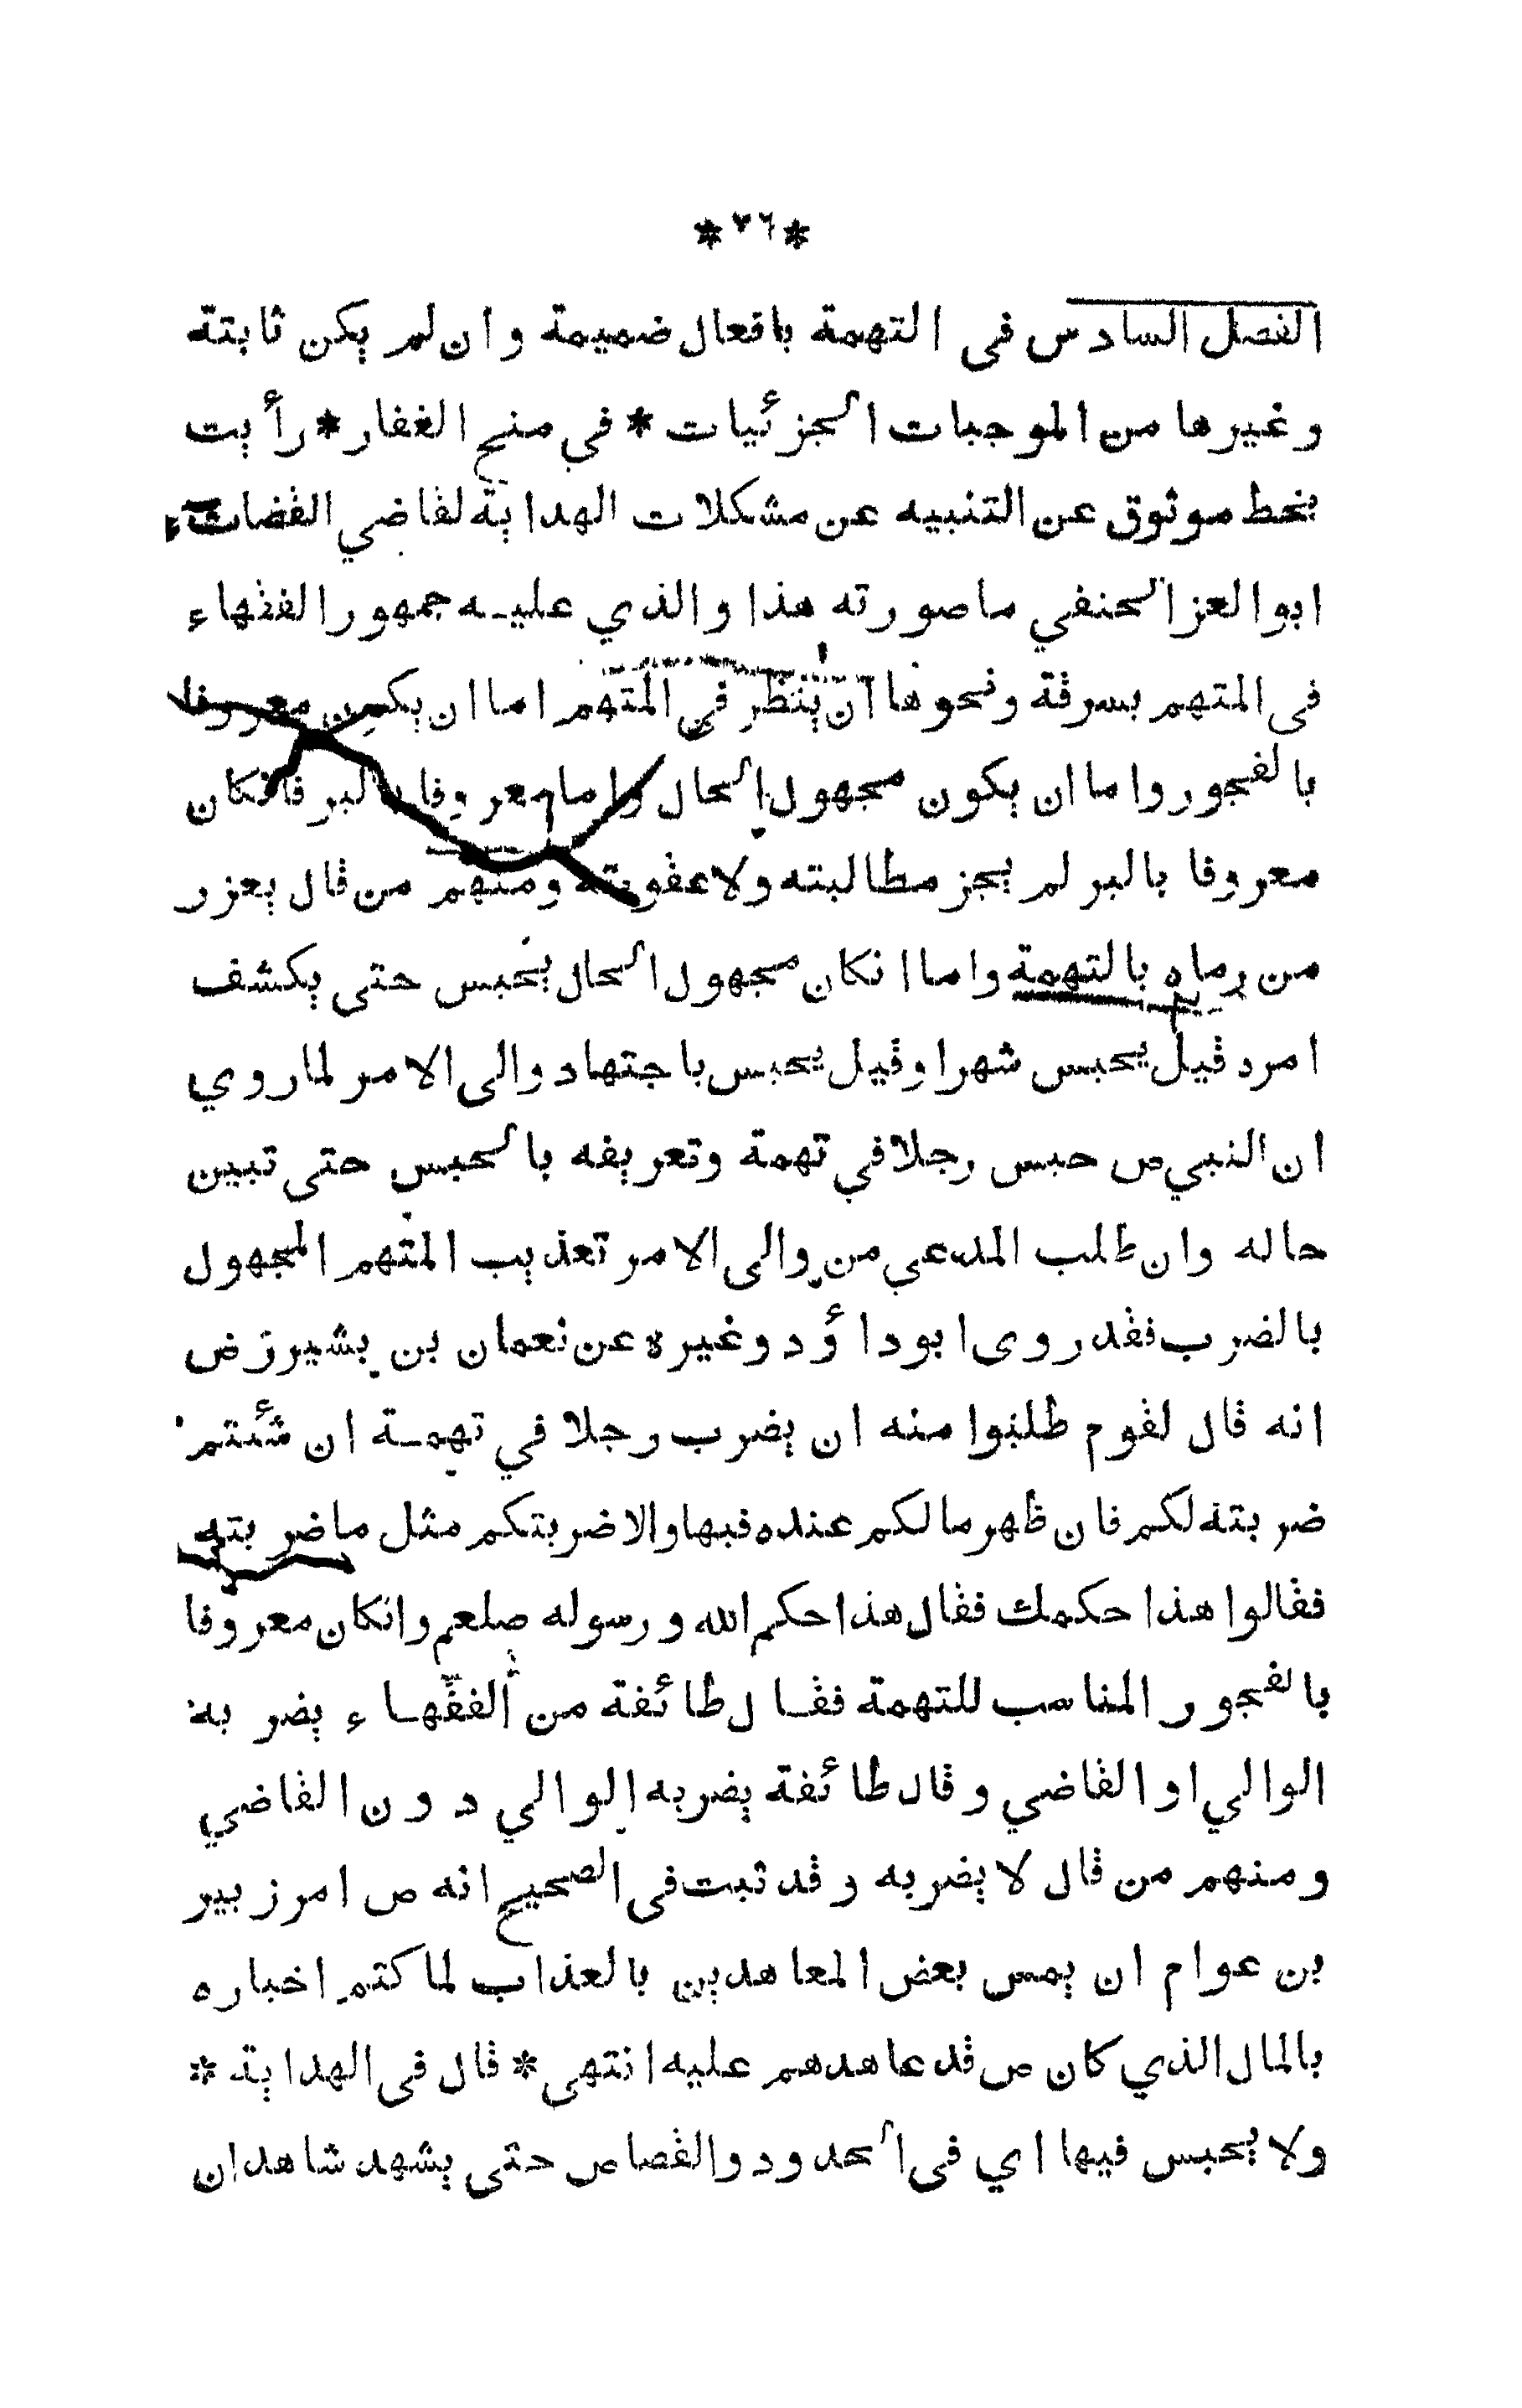 *٧٦*
الفصل السادس في التهمة بافعال ضميمة وان لم يكن ثابتة
وغيرها من الموجبات الجزئيات * في منح الغفار * رأيت
بخط موثوق عن التنبيه عن مشكلات الهداية لقاضي القضات
ابو العز الحنفي ما صورته هذا والذي عليه جمهور الفقهاء
في المتهم بسرقة ونحوها ان ينظر في المتهم اما ان يكون معروفا
بالفجور واما ان يكون مجهول الحال واما معروفا بالبر فانكان
معروفا بالبر لم يجز مطالبته ولا عقوبته ومنهم من قال يعزر
من رماه بالتهمة واما انكان مجهول الحال يحبس حتى يكشف
امره قيل يحبس شهرا وقيل يحبس باجتهاد والى الامر لما روي
ان النبي ص حبس رجلا في تهمة وتعريفه بالحبس حتى تبين
حاله وان طلب المدعي من والى الامر تعذيب المتهم المجهول
بالضرب فقد روى ابو داؤد وغيره عن نعمان بن بشير رض
انه قال لقوم طلبوا منه ان يضرب رجلا في تهمة ان شئتم
ضربته لكم فان ظهر ما لكم عنده فبها والا ضربتكم مثل ما ضربته
فقالوا هذا حكمك فقال هذا حكم الله ورسوله صلعم وانكان معروفا
بالفجور المناسب للتهمة فقال طائفة من الفقهاء يضربه
الوالي او القاضي وقال طائفة يضربه الوالي دون القاضي
ومنهم من قال لا يضربه وقد ثبت في الصحيح انه ص امر زبير
بن عوام ان يمس بعض المعاهدين بالعذاب لما كتم اخباره
بالمال الذي كان ص قد عاهدهم عليه انتهى * قال في الهداية *
ولا يحبس فيها اي في الحدود والقصاص حتى يشهد شاهدان